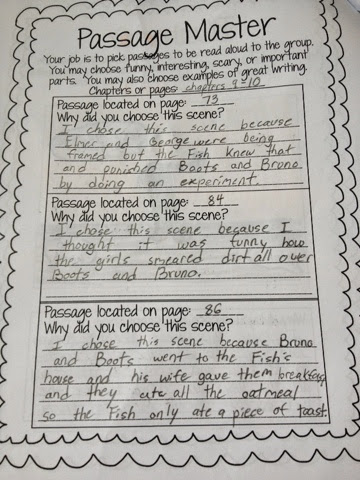 Passage Master
Your job is to pick passages to be read aloud to the group.
You may choose funny, interesting, scary, or important
parts. You may also choose examples of great writing.
Chapters or pages: chapters 9-10
Passage located on page: 73
Why did you choose this scene?
I chose this scene because
Elmer and George were being
framed but the Fish knew that
and punished Boots and Bruno
by doing an experiment.
Passage located on page: 84
Why did you choose this scene?
I chose this scene because I
thought it was funny how
the girls smeared dirt all over
Boots and Bruno.
Passage located on page: 86
Why did you choose this scene?
I chose this scene because Bruno
and Boots went to the Fish's
house and his wife gave them breakfast
and they ate all the oatmeal
so the Fish only ate a piece of toast.